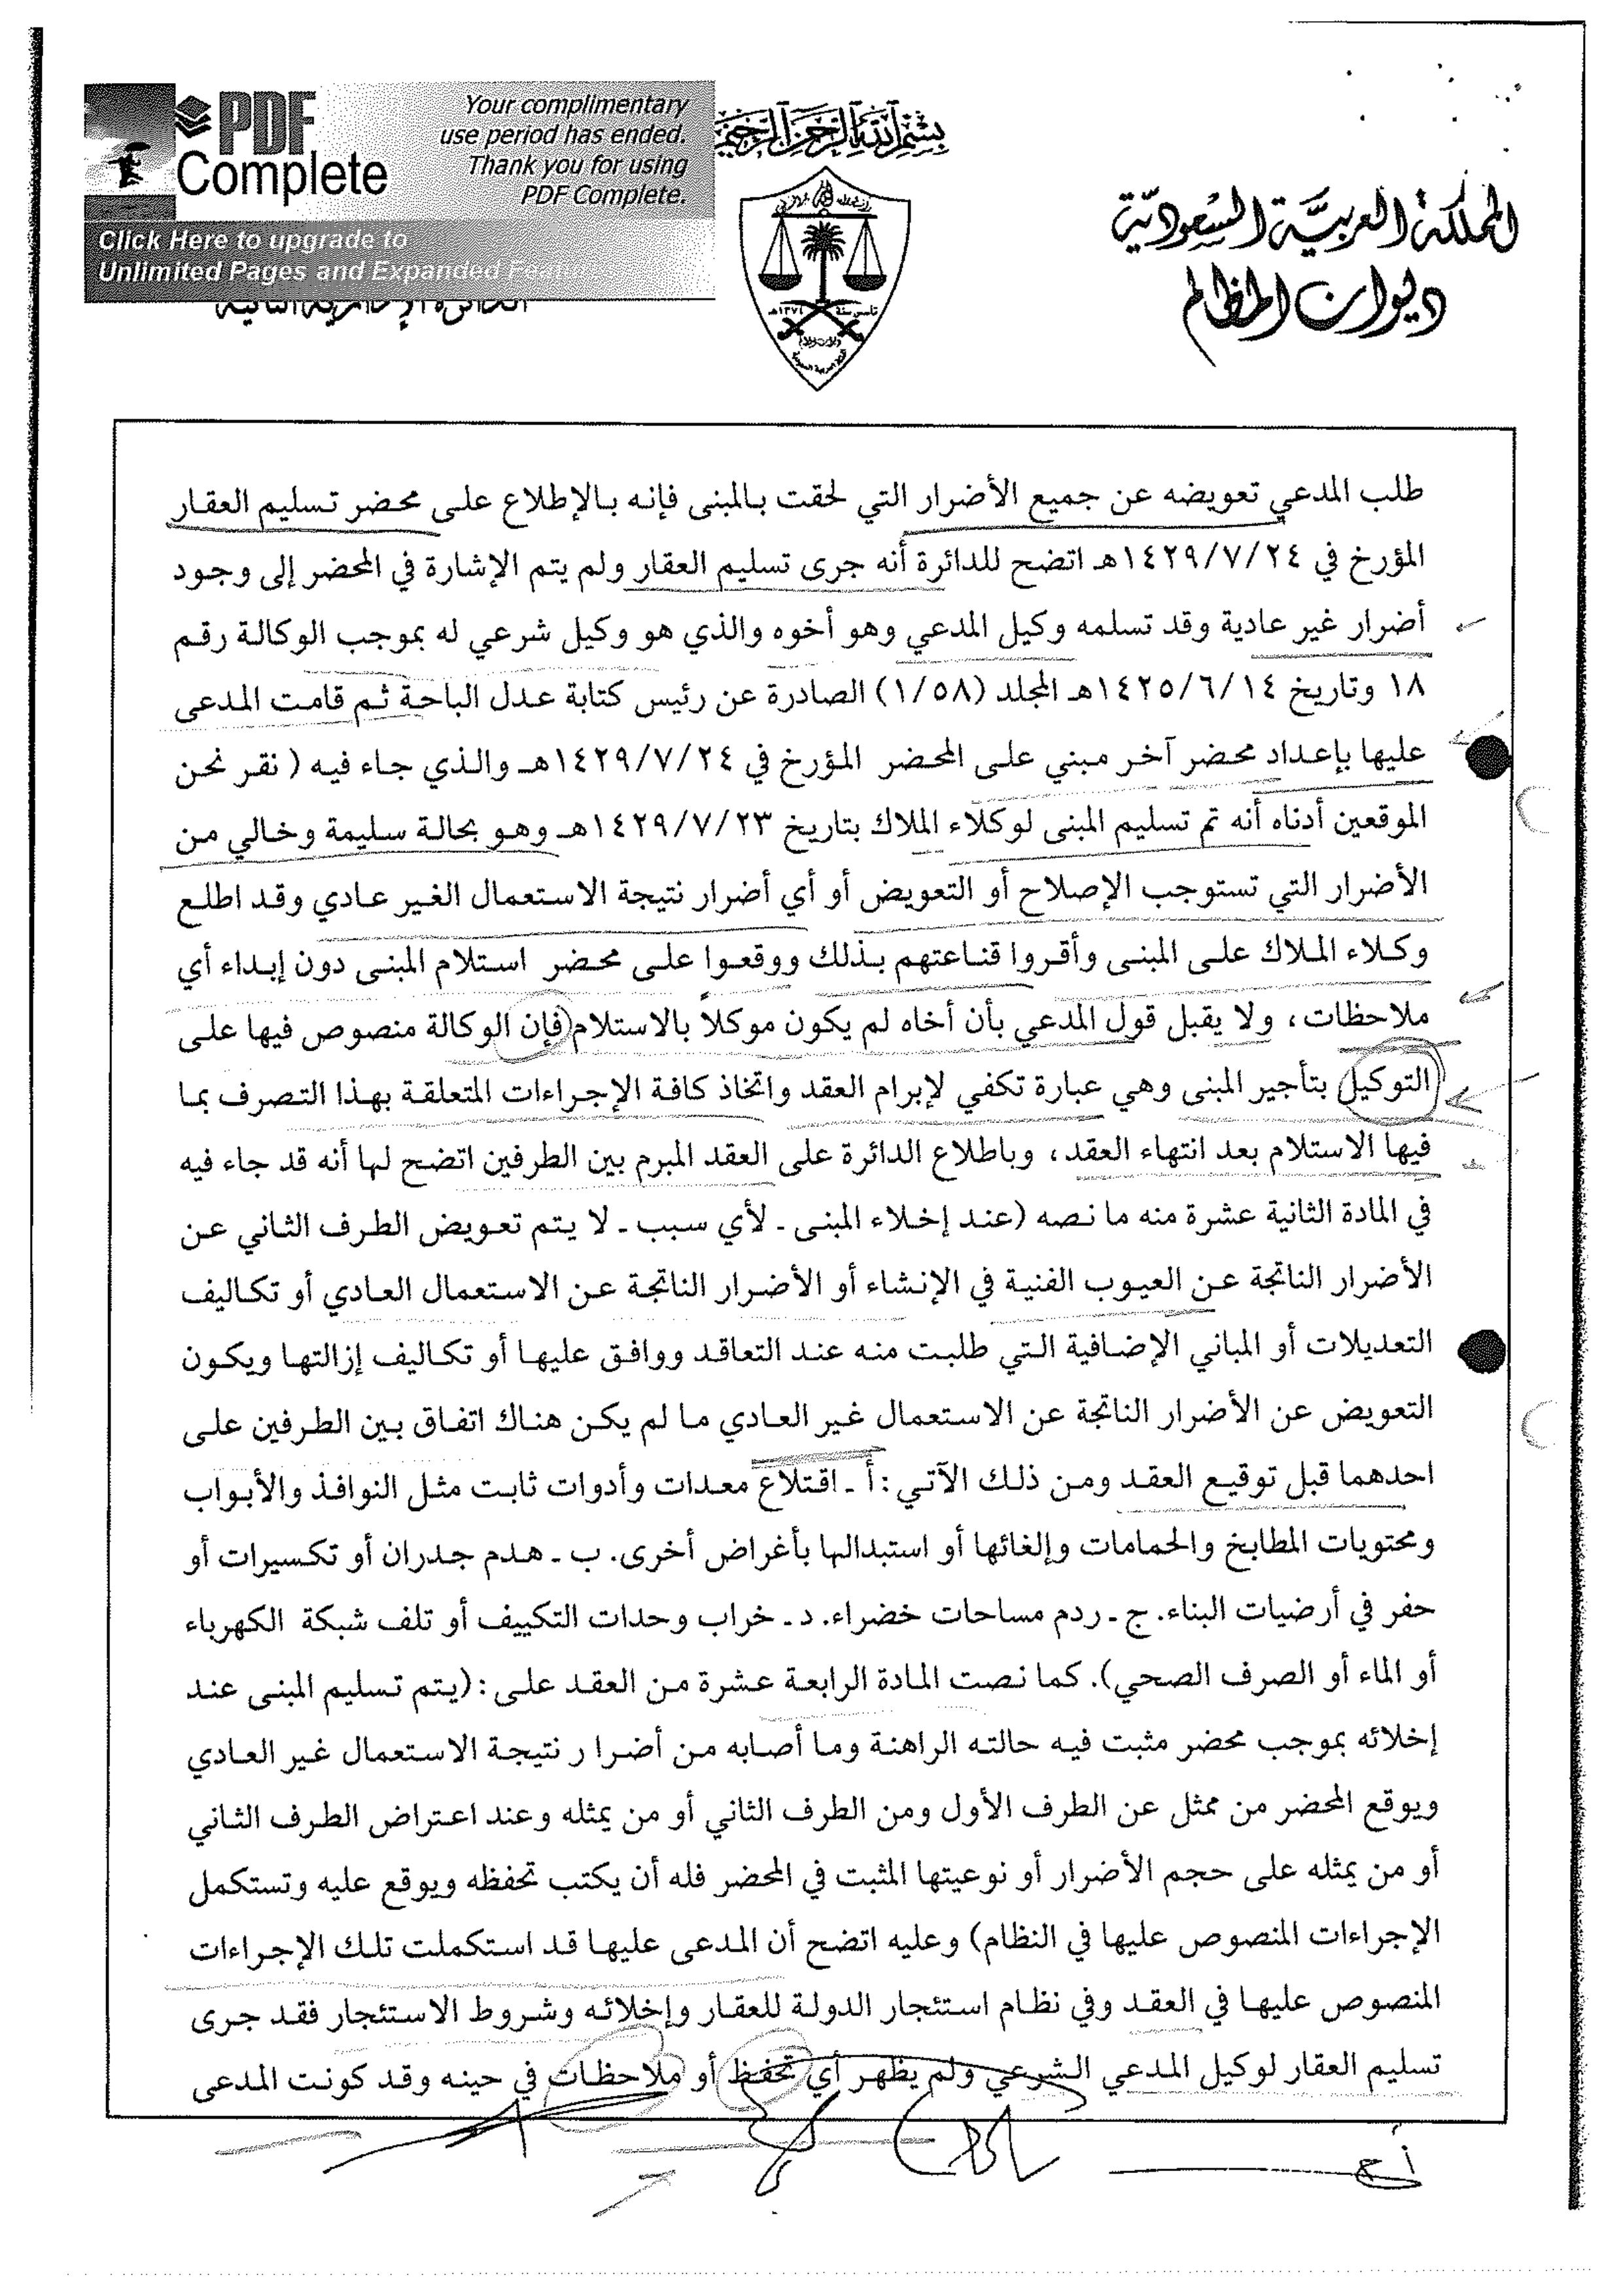 PDF Complete
Your complimentary
use period has ended.
Thank you for using
PDF Complete.
Click Here to upgrade to
Unlimited Pages and Expanded
بسم الله الرحمن الرحيم
المملكة العربية السعودية
ديوان المظالم
طلب المدعي تعويضه عن جميع الأضرار التي لحقت بالمبنى فإنه بالإطلاع على محضر تسليم العقار
المؤرخ في ١٤٢٩/٧/٢٤هـ اتضح للدائرة أنه جرى تسليم العقار ولم يتم الإشارة في المحضر إلى وجود
أضرار غير عادية وقد تسلمه وكيل المدعي وهو أخوه والذي هو وكيل شرعي له بموجب الوكالة رقم
١٨ وتاريخ ١٤٢٥/٦/١٤هـ المجلد (١/٥٨) الصادرة عن رئيس كتابة عدل الباحة ثم قامت المدعى
عليها بإعداد محضر آخر مبني على المحضر المؤرخ في ١٤٢٩/٧/٢٤هـ والذي جاء فيه ( نقر نحن
الموقعين أدناه أنه تم تسليم المبنى لوكلاء الملاك بتاريخ ١٤٢٩/٧/٢٣هـ وهو بحالة سليمة وخالي من
الأضرار التي تستوجب الإصلاح أو التعويض أو أي أضرار نتيجة الاستعمال الغير عادي وقد اطلع
وكلاء الملاك على المبنى وأقروا قناعتهم بذلك ووقعوا على محضر استلام المبنى دون إبداء أي
ملاحظات، ولا يقبل قول المدعي بأن أخاه لم يكون موكلاً بالاستلام فإن الوكالة منصوص فيها على
التوكيل بتأجير المبنى وهي عبارة تكفي لإبرام العقد واتخاذ كافة الإجراءات المتعلقة بهذا التصرف بما
فيها الاستلام بعد انتهاء العقد، وباطلاع الدائرة على العقد المبرم بين الطرفين اتضح لها أنه قد جاء فيه
في المادة الثانية عشرة منه ما نصه (عند إخلاء المبنى ـ لأي سبب ـ لا يتم تعويض الطرف الثاني عن
الأضرار الناتجة عن العيوب الفنية في الإنشاء أو الأضرار الناتجة عن الاستعمال العادي أو تكاليف
التعديلات أو المباني الإضافية التي طلبت منه عند التعاقد ووافق عليها أو تكاليف إزالتها ويكون
التعويض عن الأضرار الناتجة عن الاستعمال غير العادي ما لم يكن هناك اتفاق بين الطرفين على
احدهما قبل توقيع العقد ومن ذلك الآتي : أ ـ اقتلاع معدات وأدوات ثابت مثل النوافذ والأبواب
ومحتويات المطابخ والحمامات وإلغائها أو استبدالها بأغراض أخرى. ب ـ هدم جدران أو تكسيرات أو
حفر في أرضيات البناء. ج ـ ردم مساحات خضراء. د ـ خراب وحدات التكييف أو تلف شبكة الكهرباء
أو الماء أو الصرف الصحي). كما نصت المادة الرابعة عشرة من العقد على : (يتم تسليم المبنى عند
إخلائه بموجب محضر مثبت فيه حالته الراهنة وما أصابه من أضرا ر نتيجة الاستعمال غير العادي
ويوقع المحضر من ممثل عن الطرف الأول ومن الطرف الثاني أو من يمثله وعند اعتراض الطرف الثاني
أو من يمثله على حجم الأضرار أو نوعيتها المثبت في المحضر فله أن يكتب تحفظه ويوقع عليه وتستكمل
الإجراءات المنصوص عليها في النظام) وعليه اتضح أن المدعى عليها قد استكملت تلك الإجراءات
المنصوص عليها في العقد وفي نظام استئجار الدولة للعقار وإخلائه وشروط الاستئجار فقد جرى
تسليم العقار لوكيل المدعي الشرعي ولم يظهر أي تحفظ أو ملاحظات في حينه وقد كونت المدعى